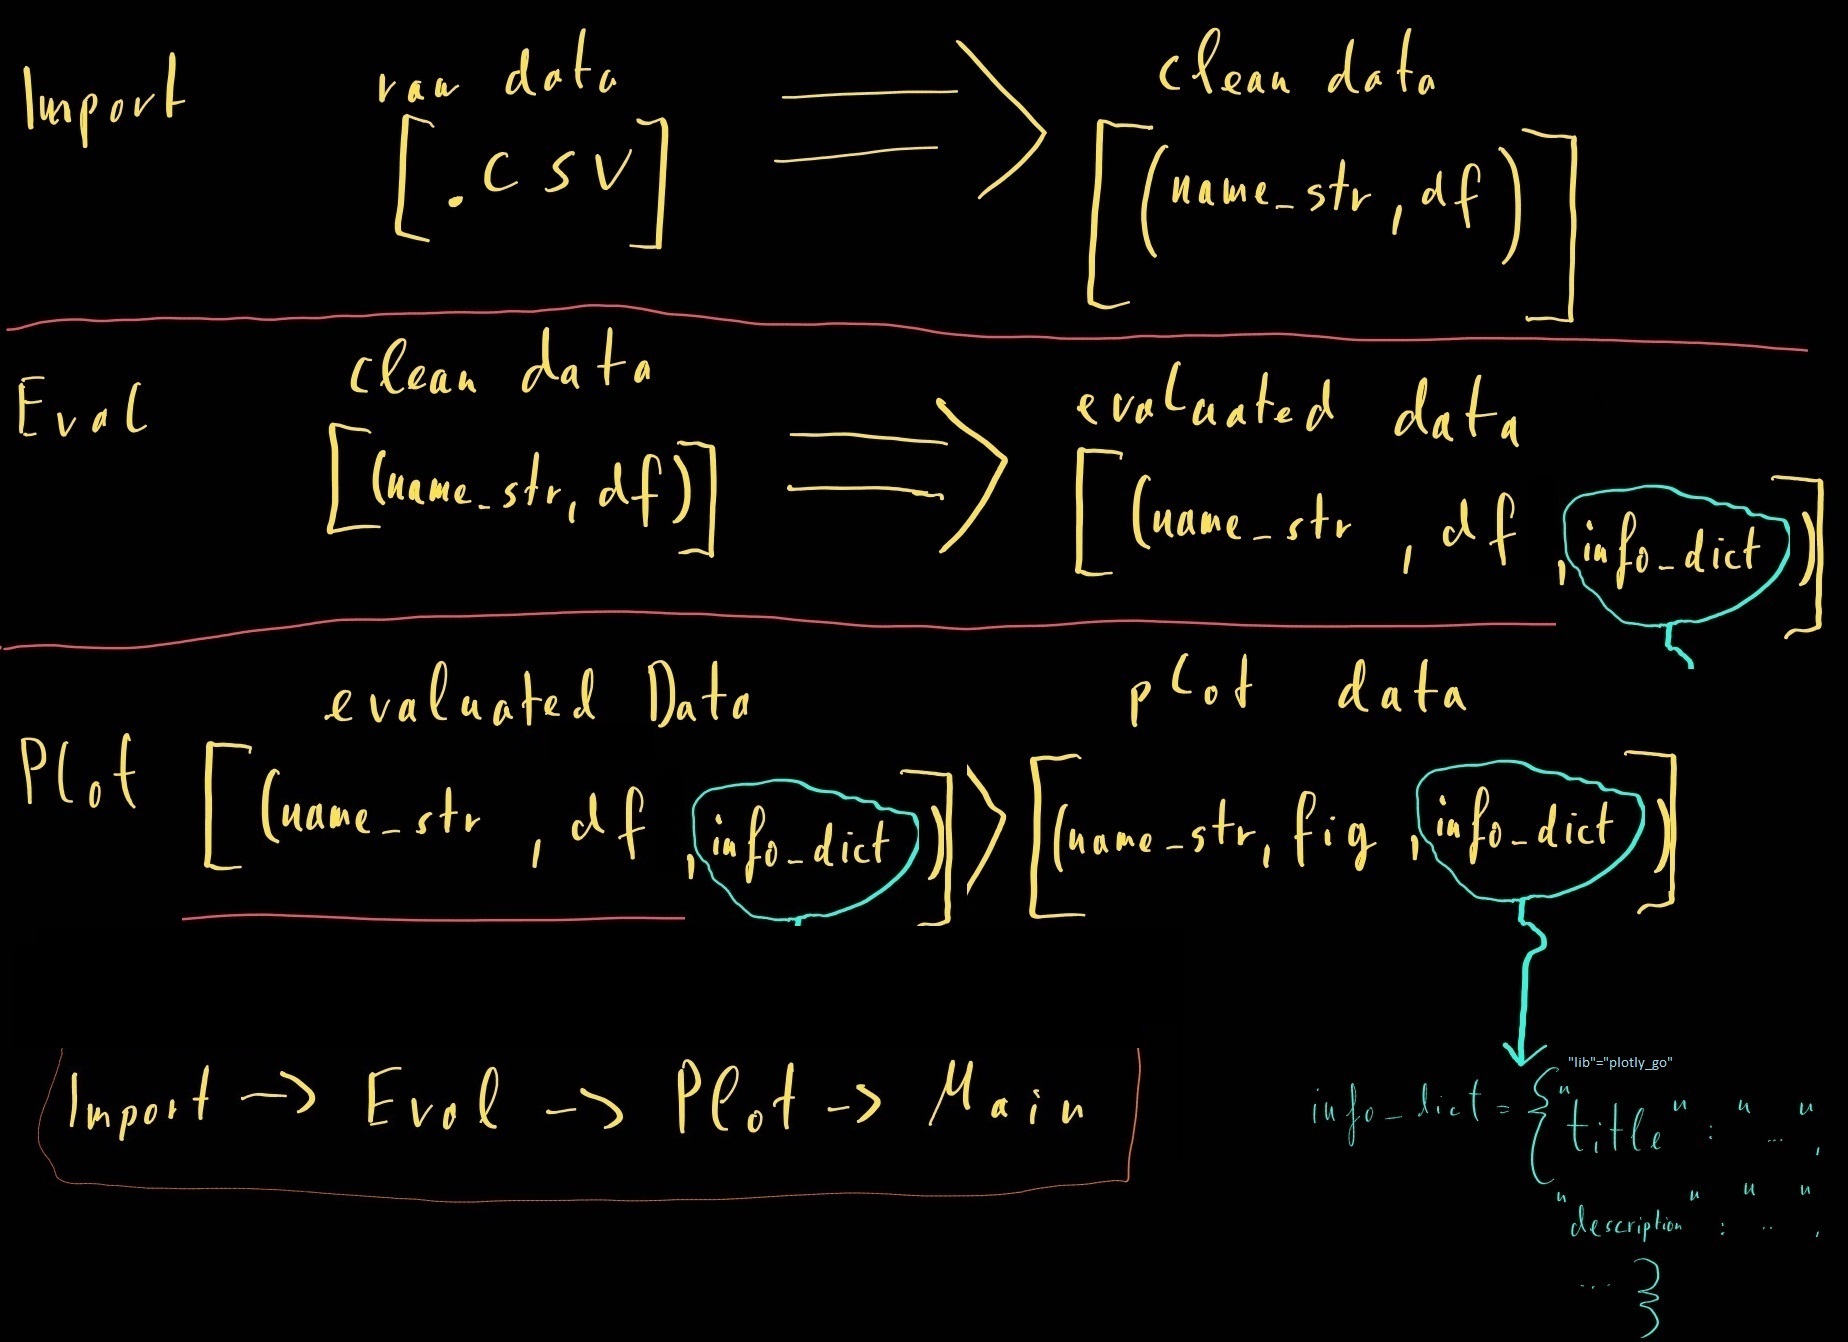 Import raw data clean data
[.csv] => [(name_str, df)]
Eval clean data evaluated data
[(name_str, df)] => [(name_str, df, info_dict)]
evaluated Data plot data
Plot [(name_str, df, info_dict)] > [(name_str, fig, info_dict)]
Import -> Eval -> Plot -> Main
"lib"="plotly_go"
info_dict = {"title" : "...",
"description" : "..",
... }